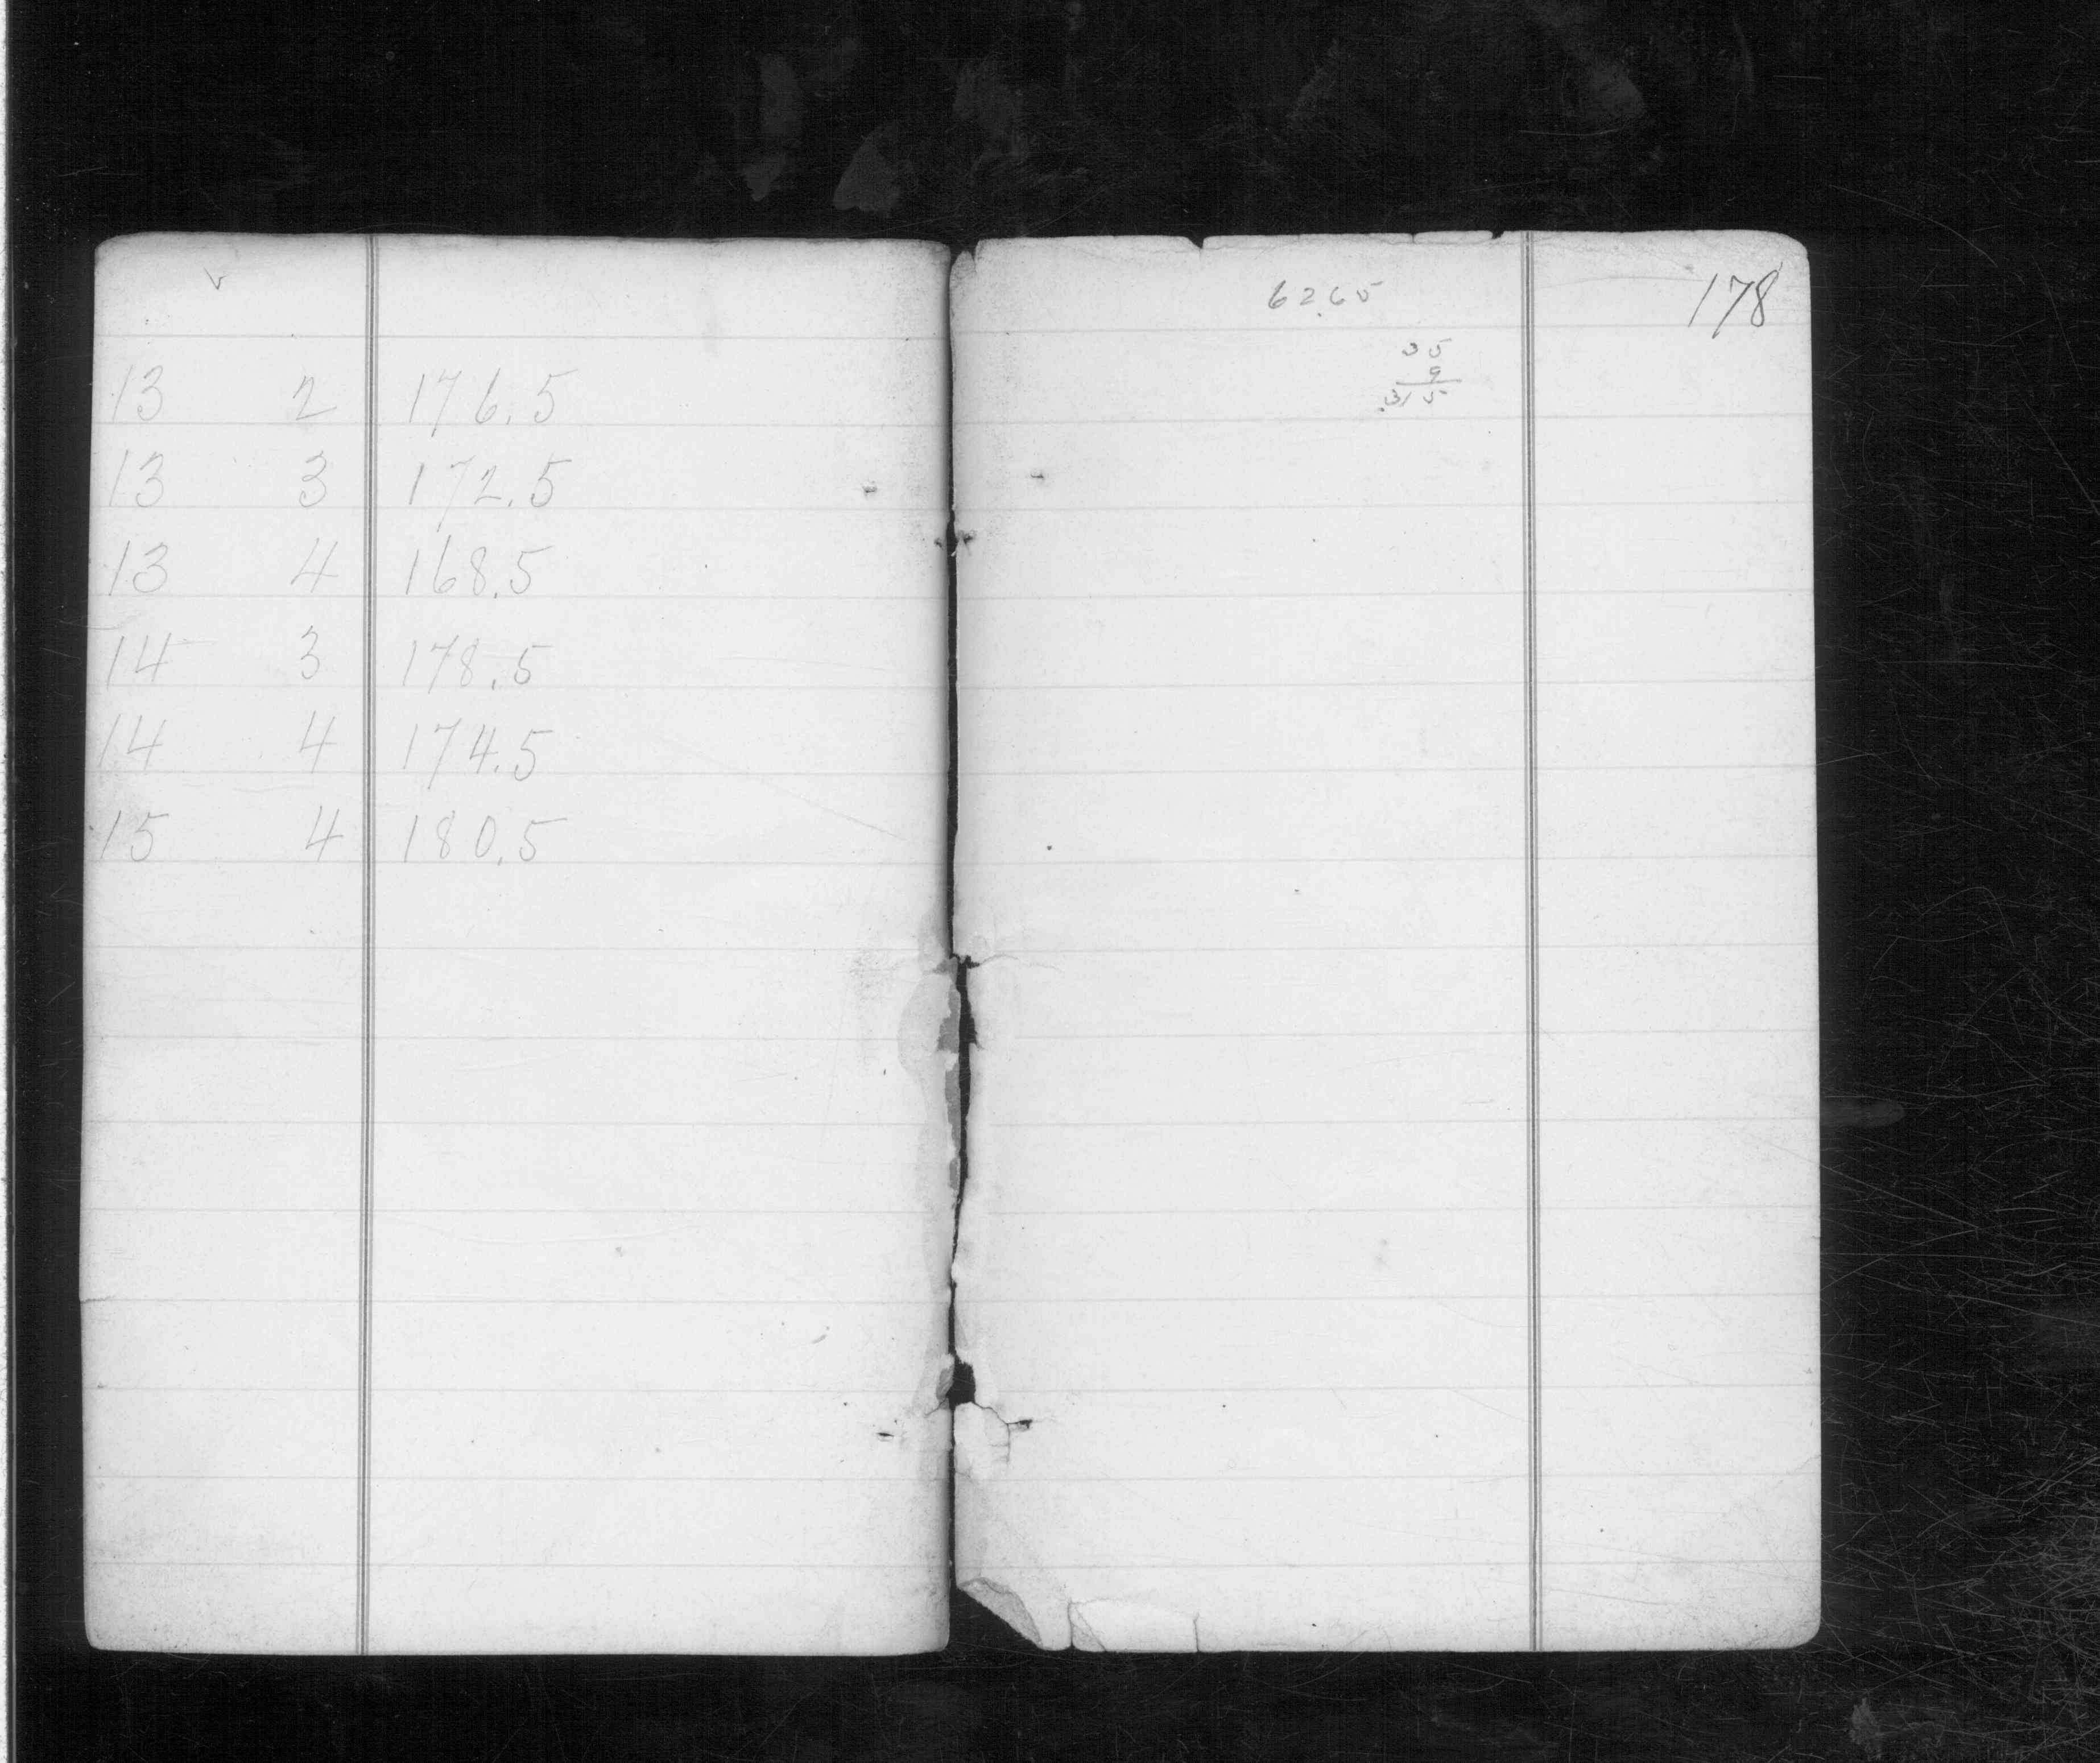 13 2 176.5
13 3 172.5
13 4 168.5
14 3 178.5
14 4 174.5
15 4 180.5
178
62.65
35
9
.315